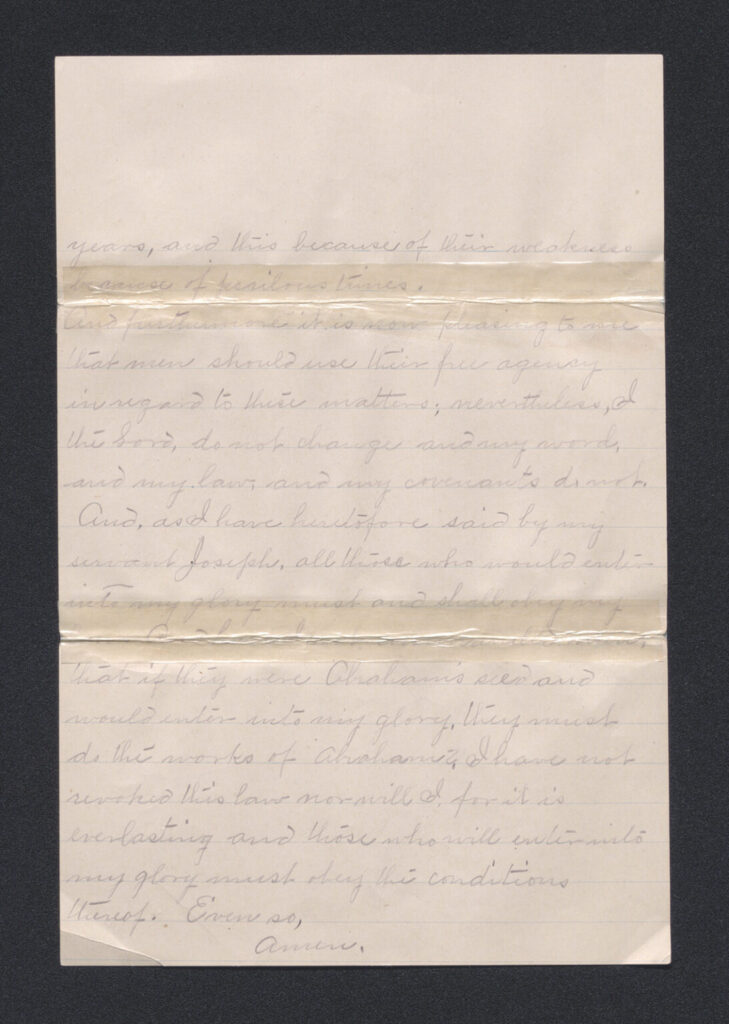 years, and this because of their weakness
because of perilous times.
And furthermore it is more pleasing to me
that men should use their free agency
in regard to these matters; nevertheless, I
the Lord, do not change and my word,
and my law, and my covenants do not.
And, as I have heretofore said by my
servant Joseph, all those who would enter
into my glory must and shall obey my
that if they were Abraham's seed and
would enter into my glory, they must
do the works of Abraham. I have not
revoked this law nor will I, for it is
everlasting and those who will enter into
my glory must obey the conditions
thereof. Even so,
Amen.